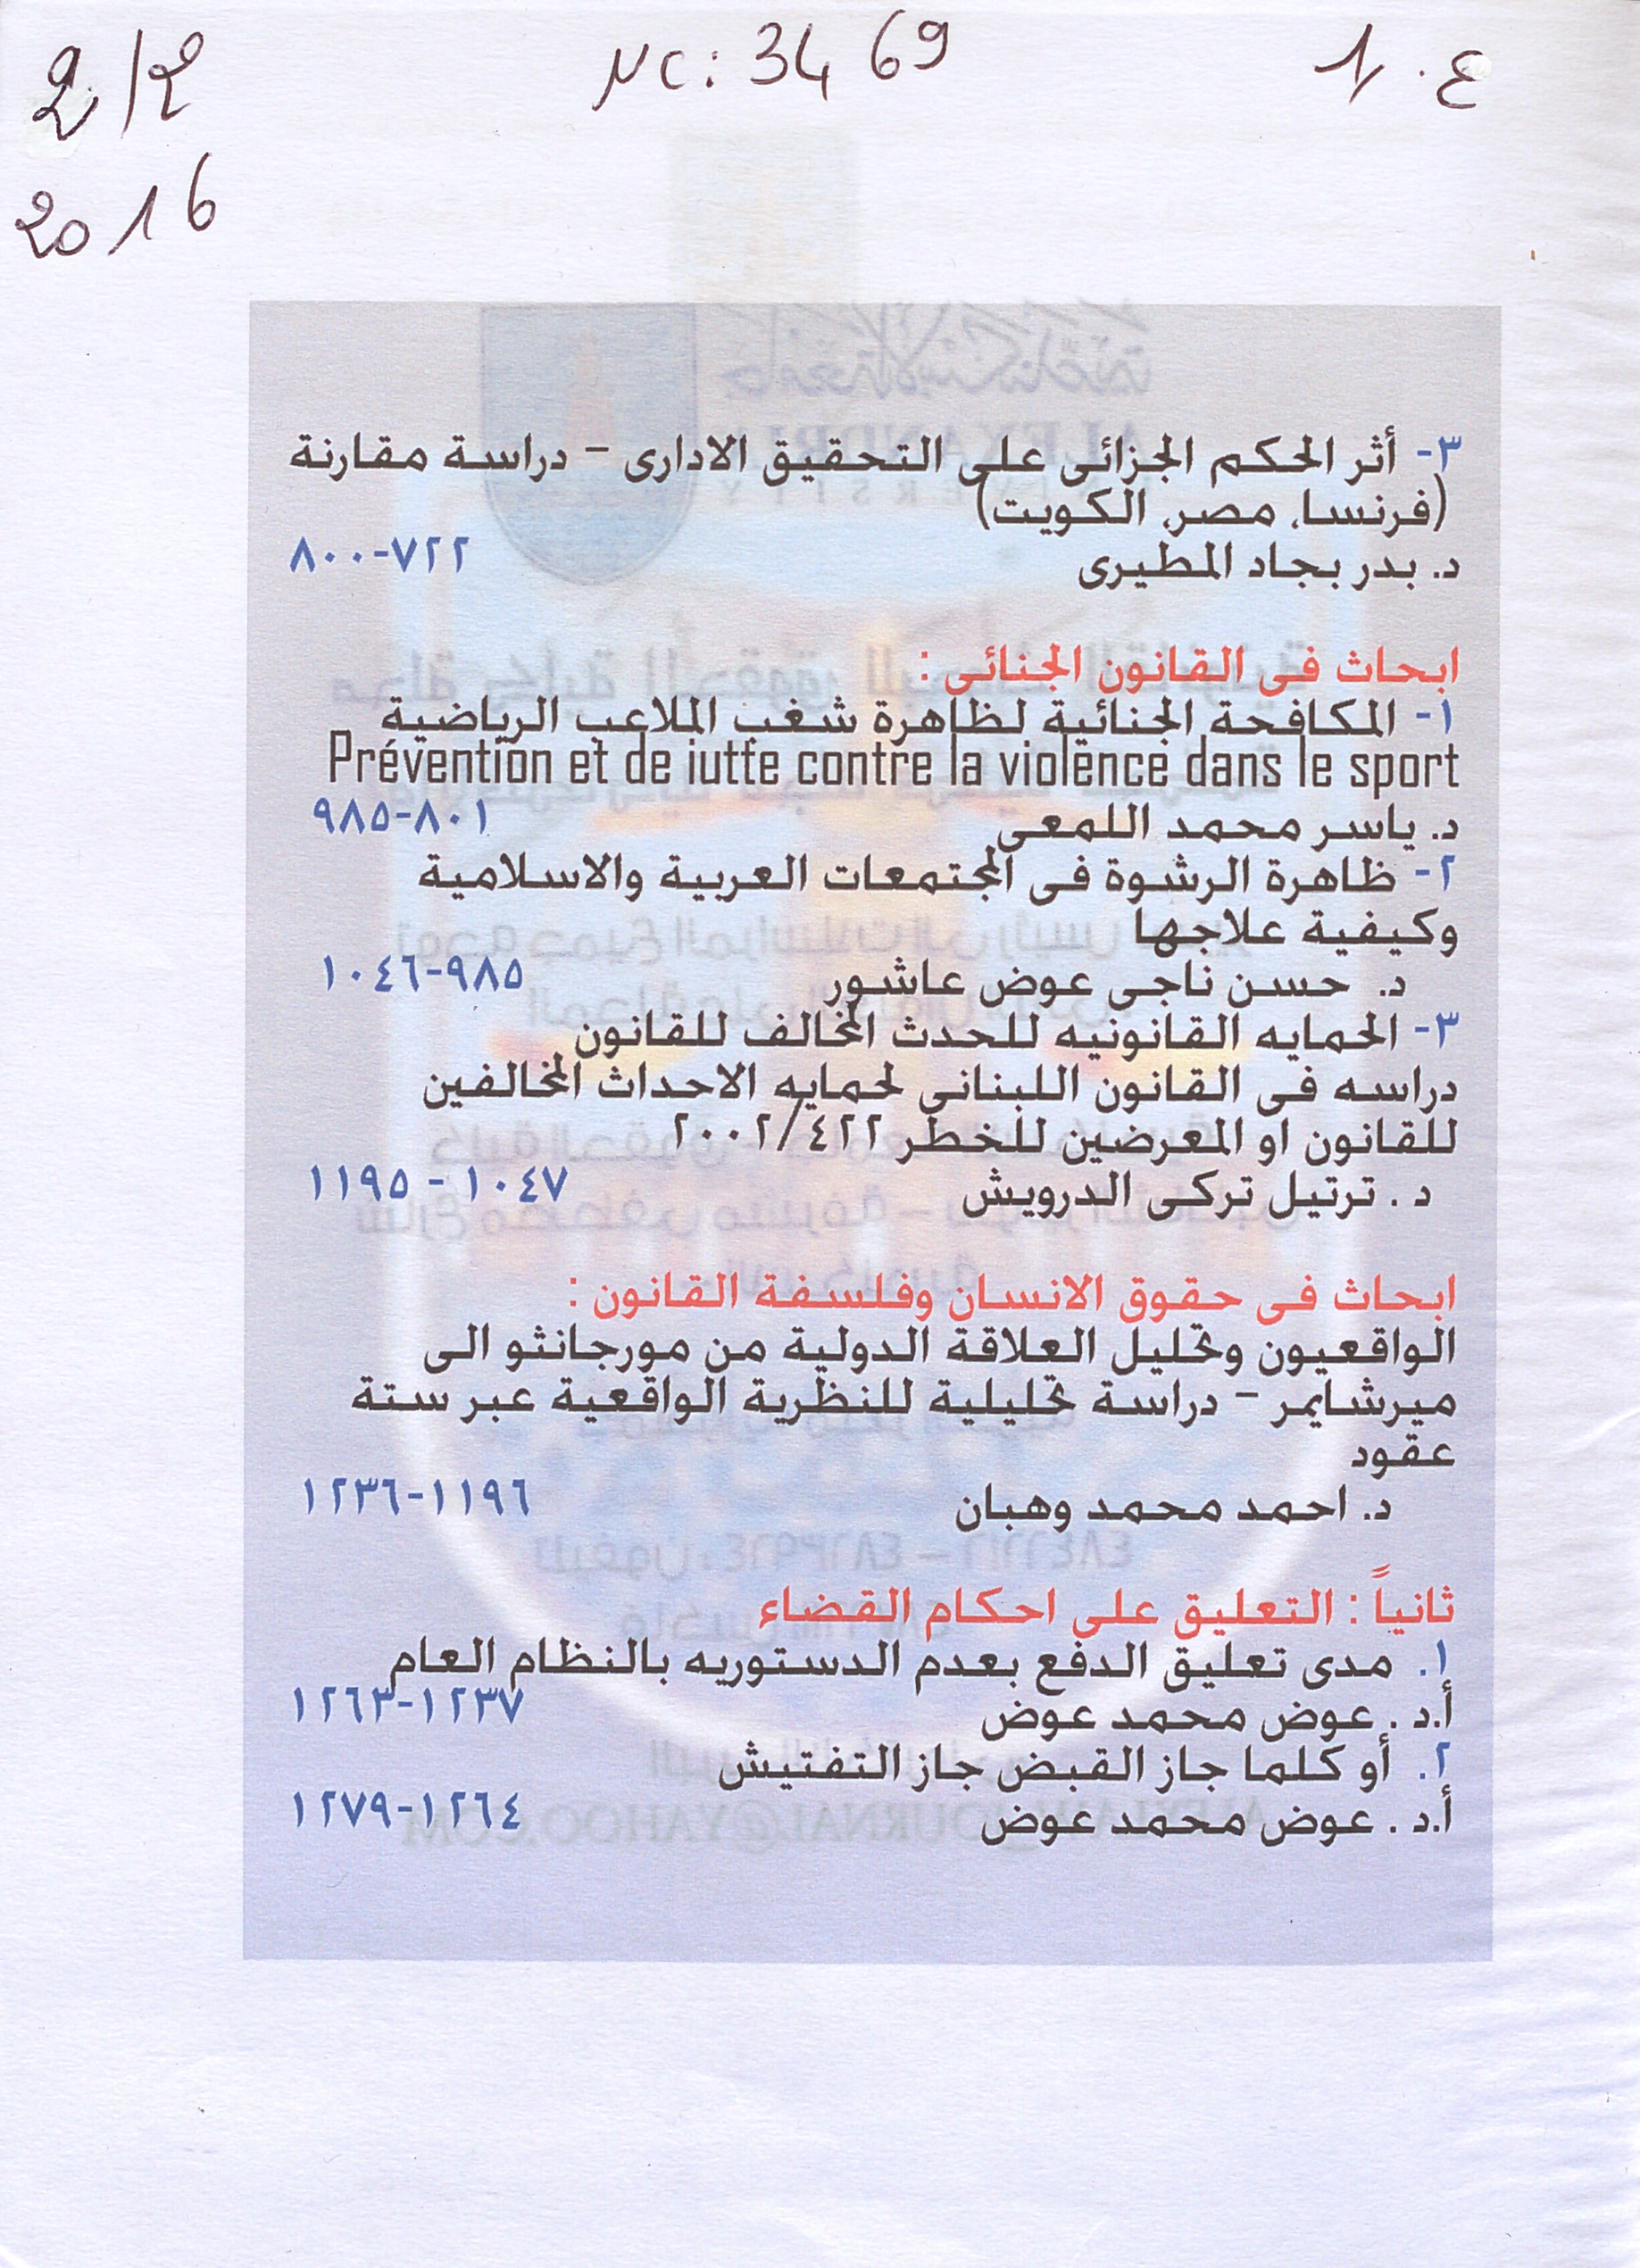 ع . 1
NC: 3469
2/2
2016
٣- أثر الحكم الجزائى على التحقيق الادارى - دراسة مقارنة
(فرنسا، مصر، الكويت)
د. بدر بجاد المطيرى ٧٢٢-٨٠٠
ابحاث فى القانون الجنائى :
١- المكافحة الجنائية لظاهرة شغب الملاعب الرياضية
Prévention et de iutte contre la violence dans le sport
د. ياسر محمد اللمعى ٨٠١-٩٨٥
٢- ظاهرة الرشوة فى المجتمعات العربية والاسلامية
وكيفية علاجها
د. حسن ناجى عوض عاشور ٩٨٥-١٠٤٦
٣- الحمايه القانونيه للحدث المخالف للقانون
دراسه فى القانون اللبنانى لحمايه الاحداث المخالفين
للقانون او المعرضين للخطر ٢٠٠٢/٤٢٢
د . ترتيل تركى الدرويش ١٠٤٧ - ١١٩٥
ابحاث فى حقوق الانسان وفلسفة القانون :
الواقعيون وتحليل العلاقة الدولية من مورجانثو الى
ميرشايمر - دراسة تحليلية للنظرية الواقعية عبر ستة
عقود
د. احمد محمد وهبان ١١٩٦-١٢٣٦
ثانياً : التعليق على احكام القضاء
١. مدى تعليق الدفع بعدم الدستوريه بالنظام العام
أ.د . عوض محمد عوض ١٢٣٧-١٢٦٣
٢. أو كلما جاز القبض جاز التفتيش
أ.د . عوض محمد عوض ١٢٦٤-١٢٧٩